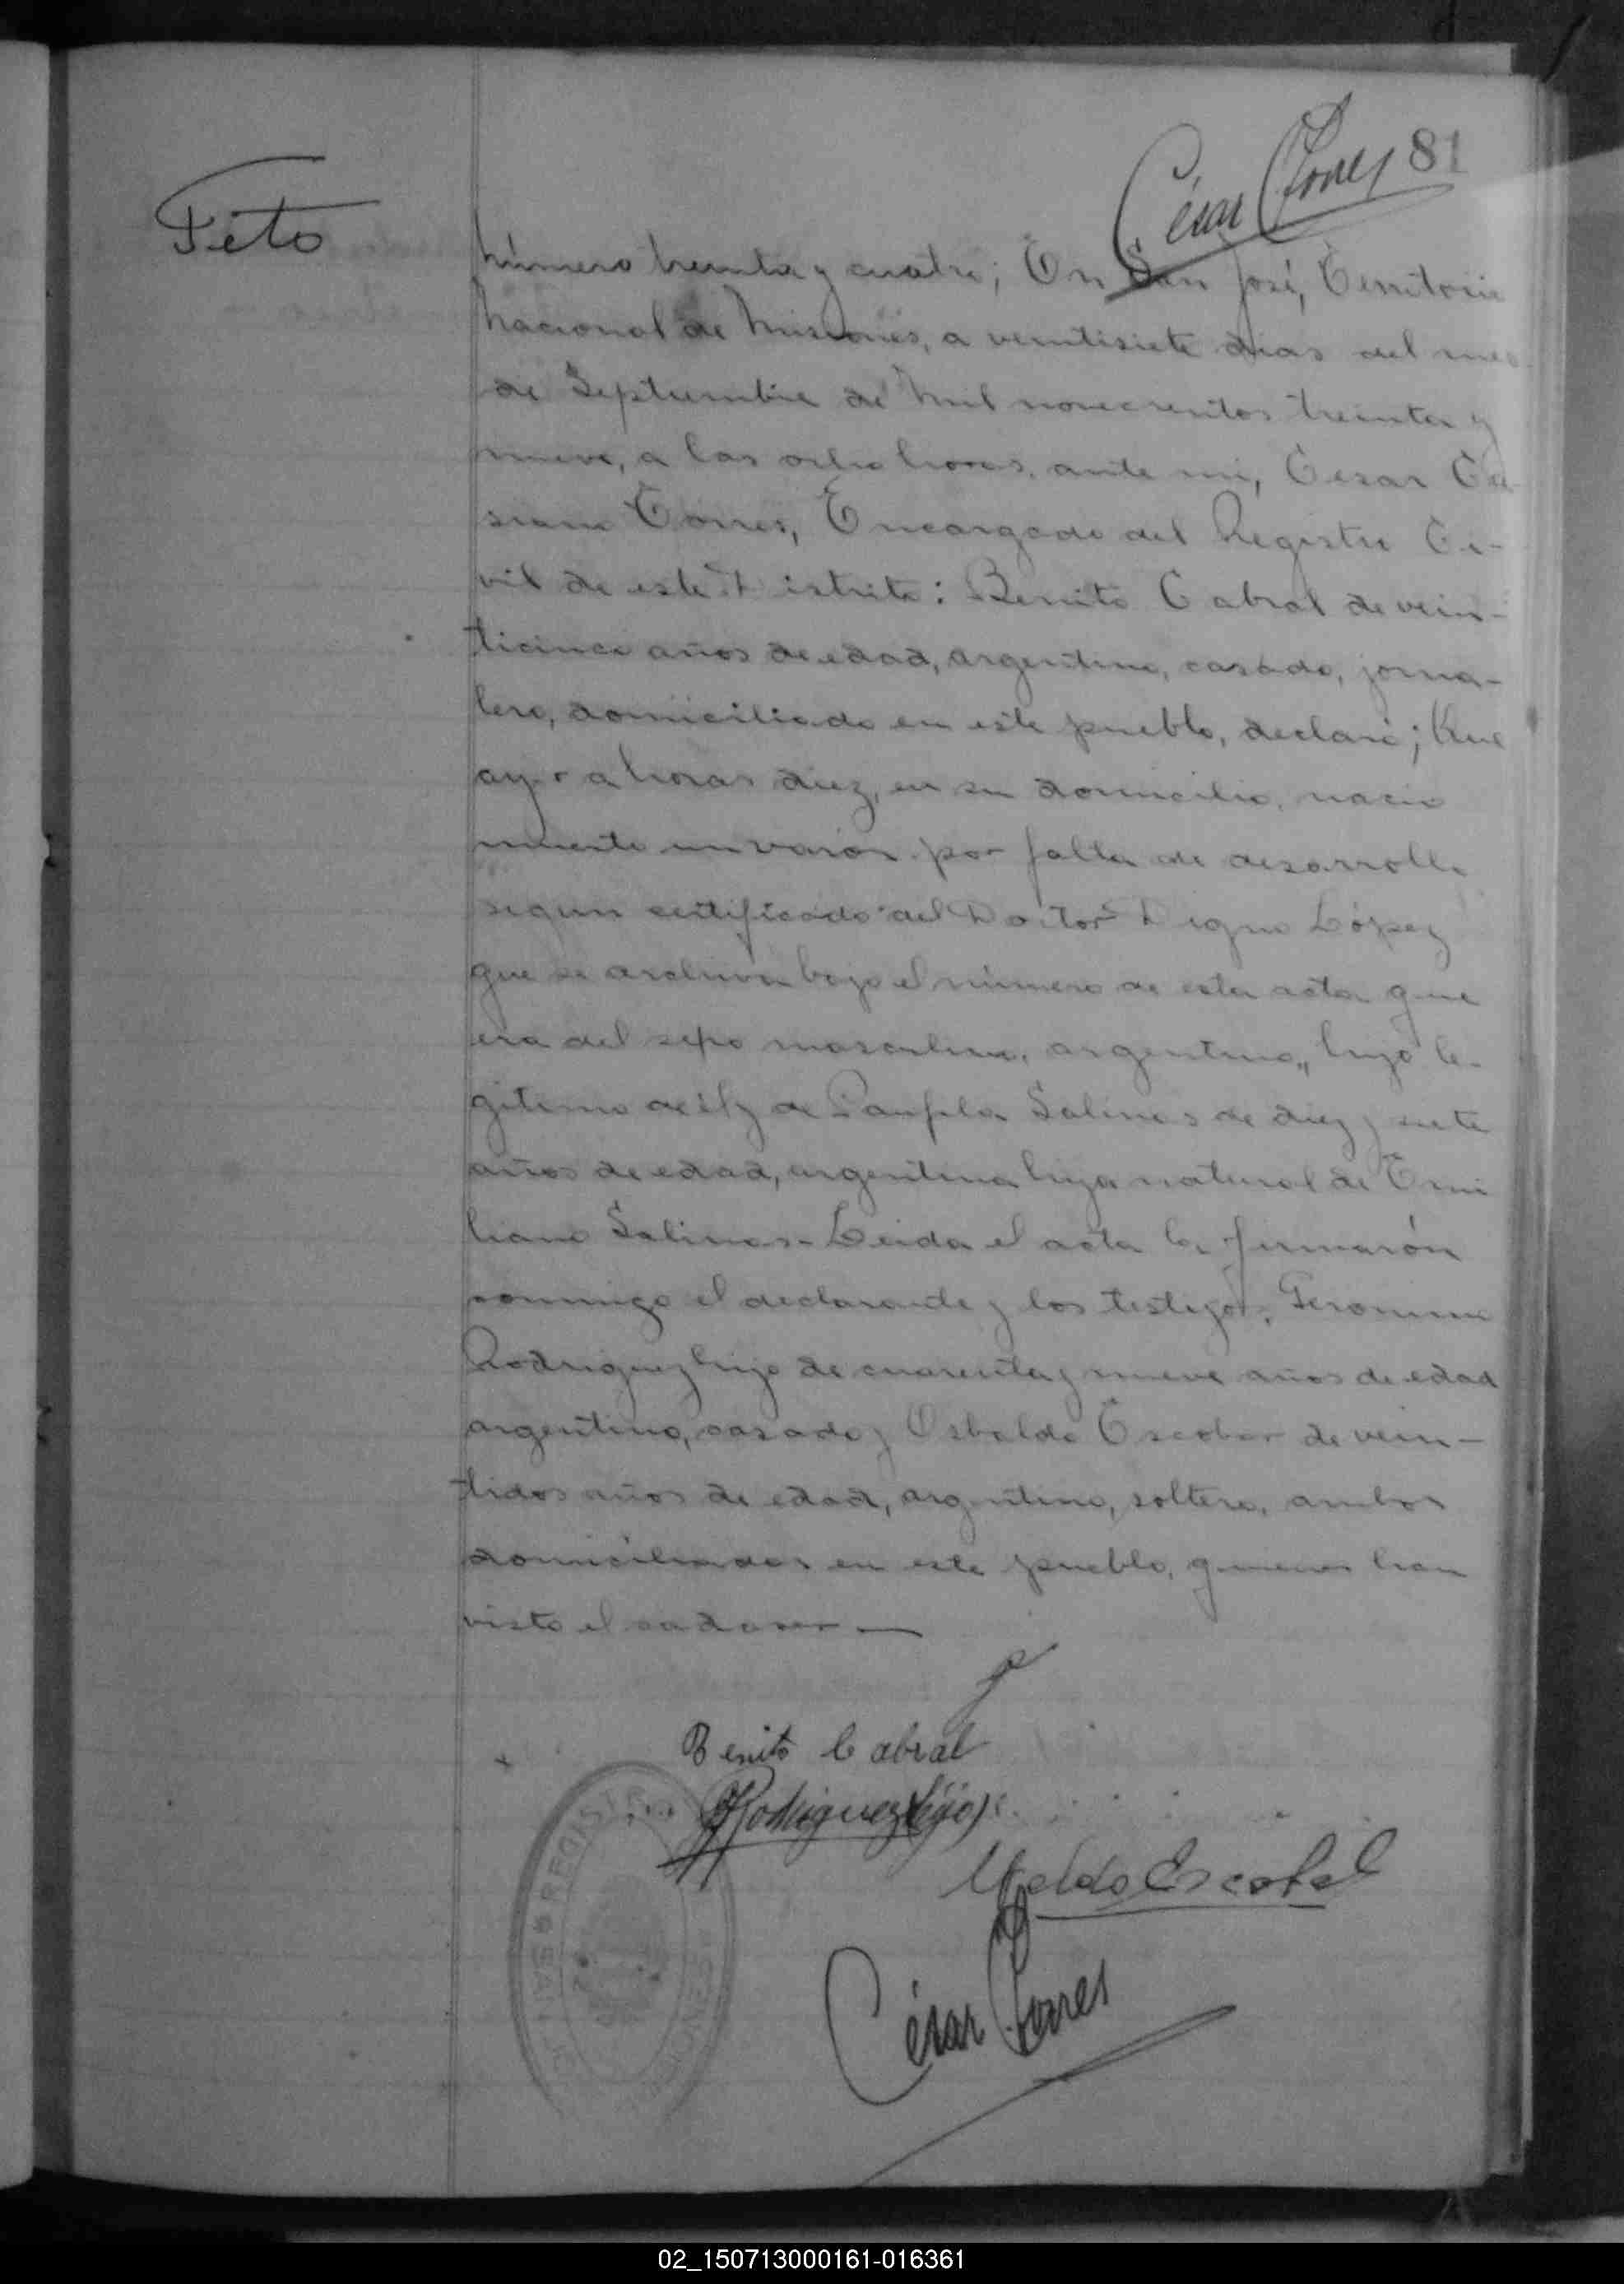 César Torres 81
Feto
Número treinta y cuatro; En San José, Territorio
Nacional de Misiones, a veintisiete dias del mes
de Septiembre de mil novecientos treinta y
nueve, a las ocho horas, ante mi, Cesar Ca-
siano Torres, Encargado del Registro Ci-
vil de este Distrito: Benito Cabral de vein-
ticinco años de edad, argentino, casado, jorna-
lero, domiciliado en este pueblo, declaró; Que
ayer a horas diez, en su domicilio, nació
muerto un varón por falta de desarrollo
segun certificado del Doctor Digno López
que se archiva bajo el número de esta acta que
era del sexo masculino, argentino, hijo le-
gitimo de él y de Salinas de diez y siete
años de edad, argentina hija natural de Emi
liana Salinas - Leida el acta la firmarón
conmigo el declarante y los testigos, Geronimo
Rodriguez hijo de cuarenta y nueve años de edad
argentino, casado y Osbaldo Escobar de vein-
tidos años de edad, argentino, soltero, ambos
domiciliados en este pueblo, quienes han
visto el cadaver —
Benito Cabral
Rodriguez (hijo)
Escobar
César Torres
REGISTRO
SAN JO
02_150713000161-016361